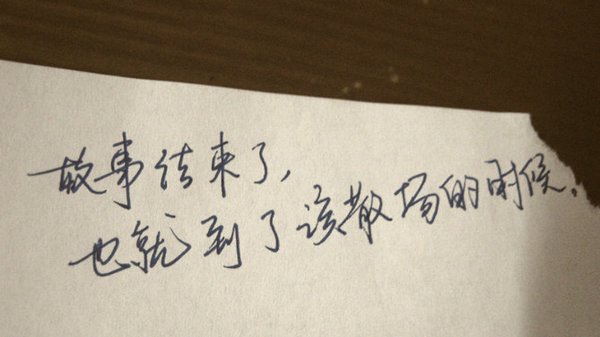 故事结束了，
也就到了该散场的时候。